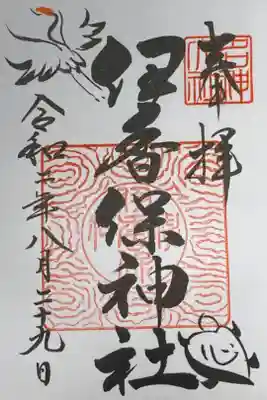 奉拝
伊香保神社
令和二年八月二十九日
心